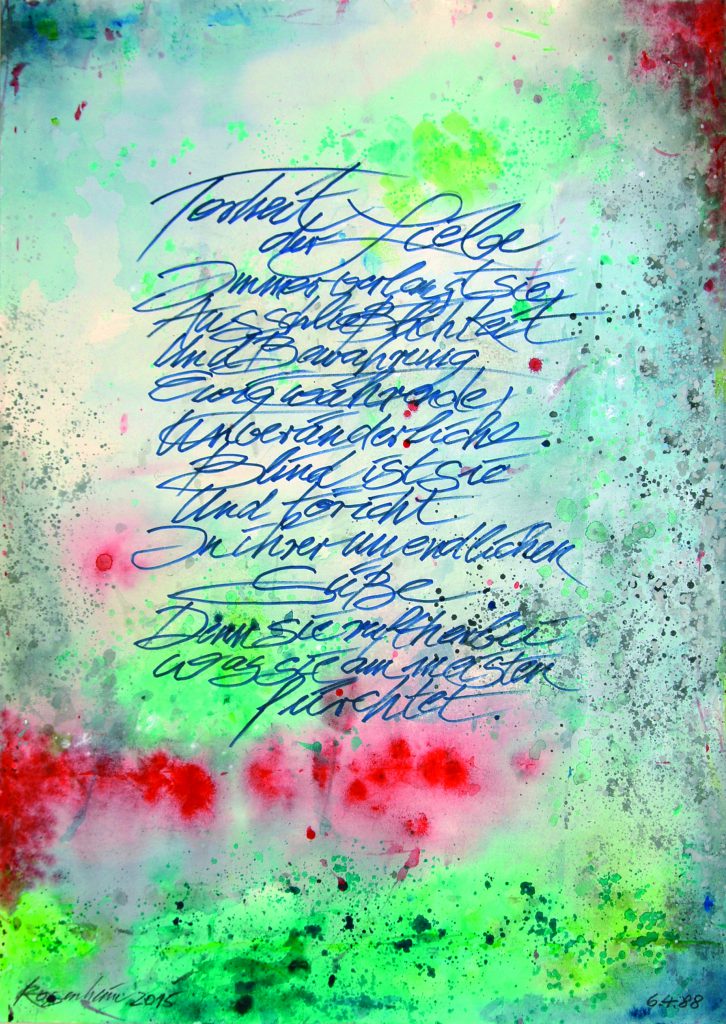 Torheit
der Liebe
Immer verlangt sie
Ausschließlichkeit
Und Bewahrung
Ewigwährende,
Unveränderliche.
Blind ist sie
Und töricht
In ihrer unendlichen
Süße
Denn sie ruft herbei
was sie am meisten
fürchtet.
2015
6.4.88